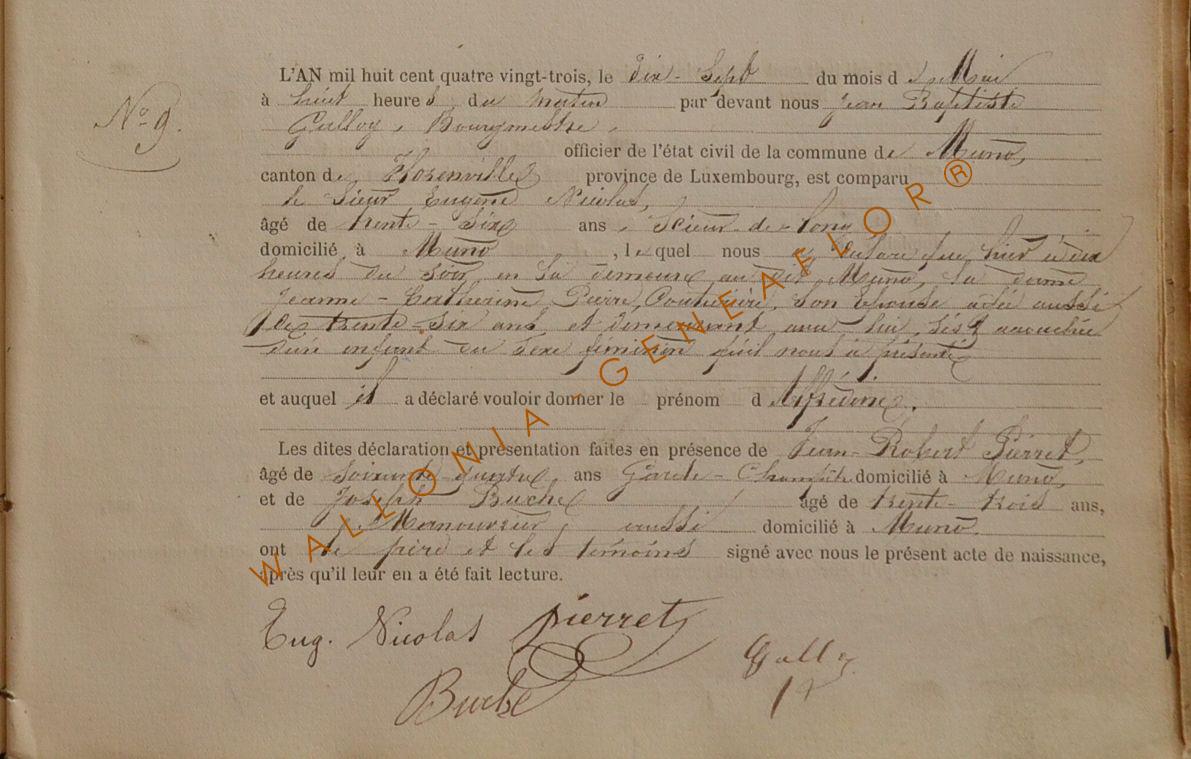 N° 9.
L'AN mil huit cent quatre vingt-trois, le Dix-Sept du mois de Mai
à huit heures du matin par devant nous Jean Baptiste
Galloy, Bourgmestre,
officier de l'état civil de la commune de Muno,
canton de Florenville province de Luxembourg, est comparu
le Sieur Eugène Nicolas,
âgé de trente-six ans Scieur-de-long
domicilié à Muno, lequel nous a déclaré que hier à dix
heures du soir, en sa demeure au dit Muno, la dame
Jeanne-Catherine Pierre, Couturière, son épouse âgée aussi
de trente-six ans et demeurant avec lui, est accouchée
d'un enfant du sexe féminin qu'il nous a présenté
et auquel il a déclaré vouloir donner le prénom d'
Les dites déclaration et présentation faites en présence de Jean-Robert Pierret,
âgé de soixante-quatre ans Garde-Champêtre domicilié à Muno,
et de Joseph âgé de trente-trois ans,
Manouvrier, aussi domicilié à Muno.
ont le père et les témoins signé avec nous le présent acte de naissance,
après qu'il leur en a été fait lecture.
Eug. Nicolas Pierret
Gally
WALLONIA-GENEAFLOR®